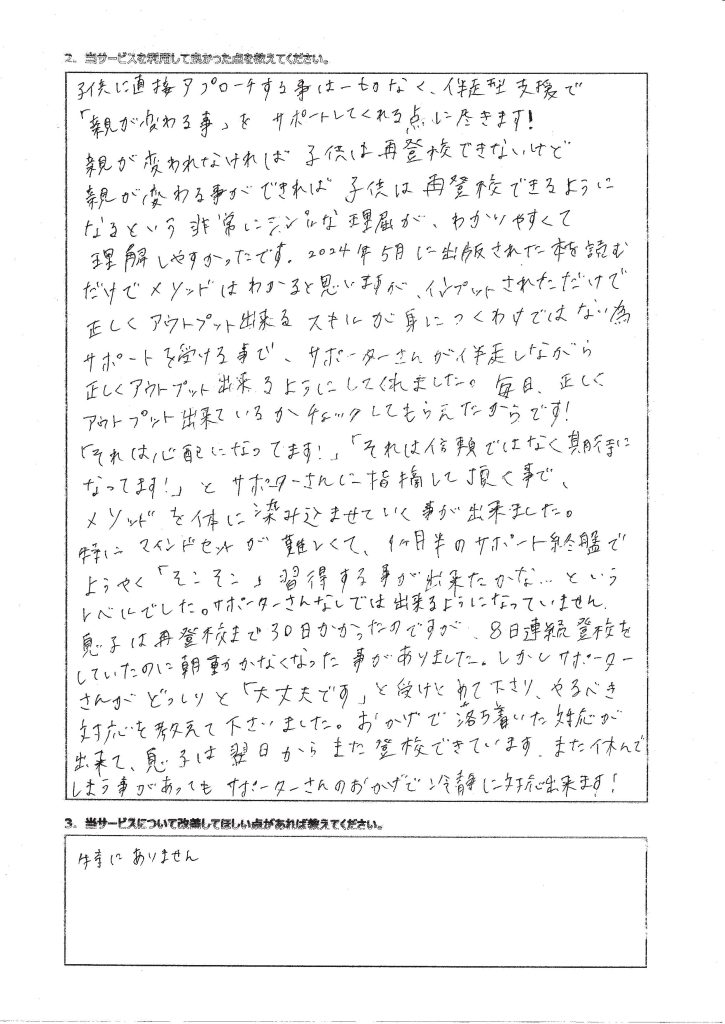 2. 当サービスを利用して良かった点を教えてください。
子供に直接アプローチする事は一切なく、伴走型支援で
「親が変わる事」をサポートしてくれる点に尽きます!
親が変われなければ子供は再登校できないけど
親が変わる事ができれば子供は再登校できるように
なるという非常にシンプルな理屈が、わかりやすくて
理解しやすかったです。2024年5月に出版された本を読む
だけでメソッドはわかると思いますが、インプットされただけで
正しくアウトプット出来るスキルが身につくわけではない為
サポートを受ける事で、サポーターさんが伴走しながら
正しくアウトプット出来るようにしてくれました。毎日、正しく
アウトプット出来ているかチェックしてもらえたからです!
「それは心配になってます!」「それは信頼ではなく期待に
なってます!」とサポーターさんに指摘して頂く事で、
メソッドを体に染み込ませていく事が出来ました。
特にマインドセットが難しくて、1ヶ月半のサポート終盤で
ようやく「そこそこ」習得する事が出来たかな…という
レベルでした。サポーターさんなしでは出来るようになっていません。
息子は再登校まで30日かかったのですが、8日連続登校を
していたのに朝動かなくなった事がありました。しかしサポーター
さんがどっしりと「大丈夫です」と受けとめて下さり、やるべき
対応を教えて下さいました。おかげで落ち着いた対応が
出来て、息子は翌日からまた登校できています。また休んで
しまう事があってもサポーターさんのおかげで冷静に対応出来ます!
3. 当サービスについて改善してほしい点があれば教えてください。
特にありません